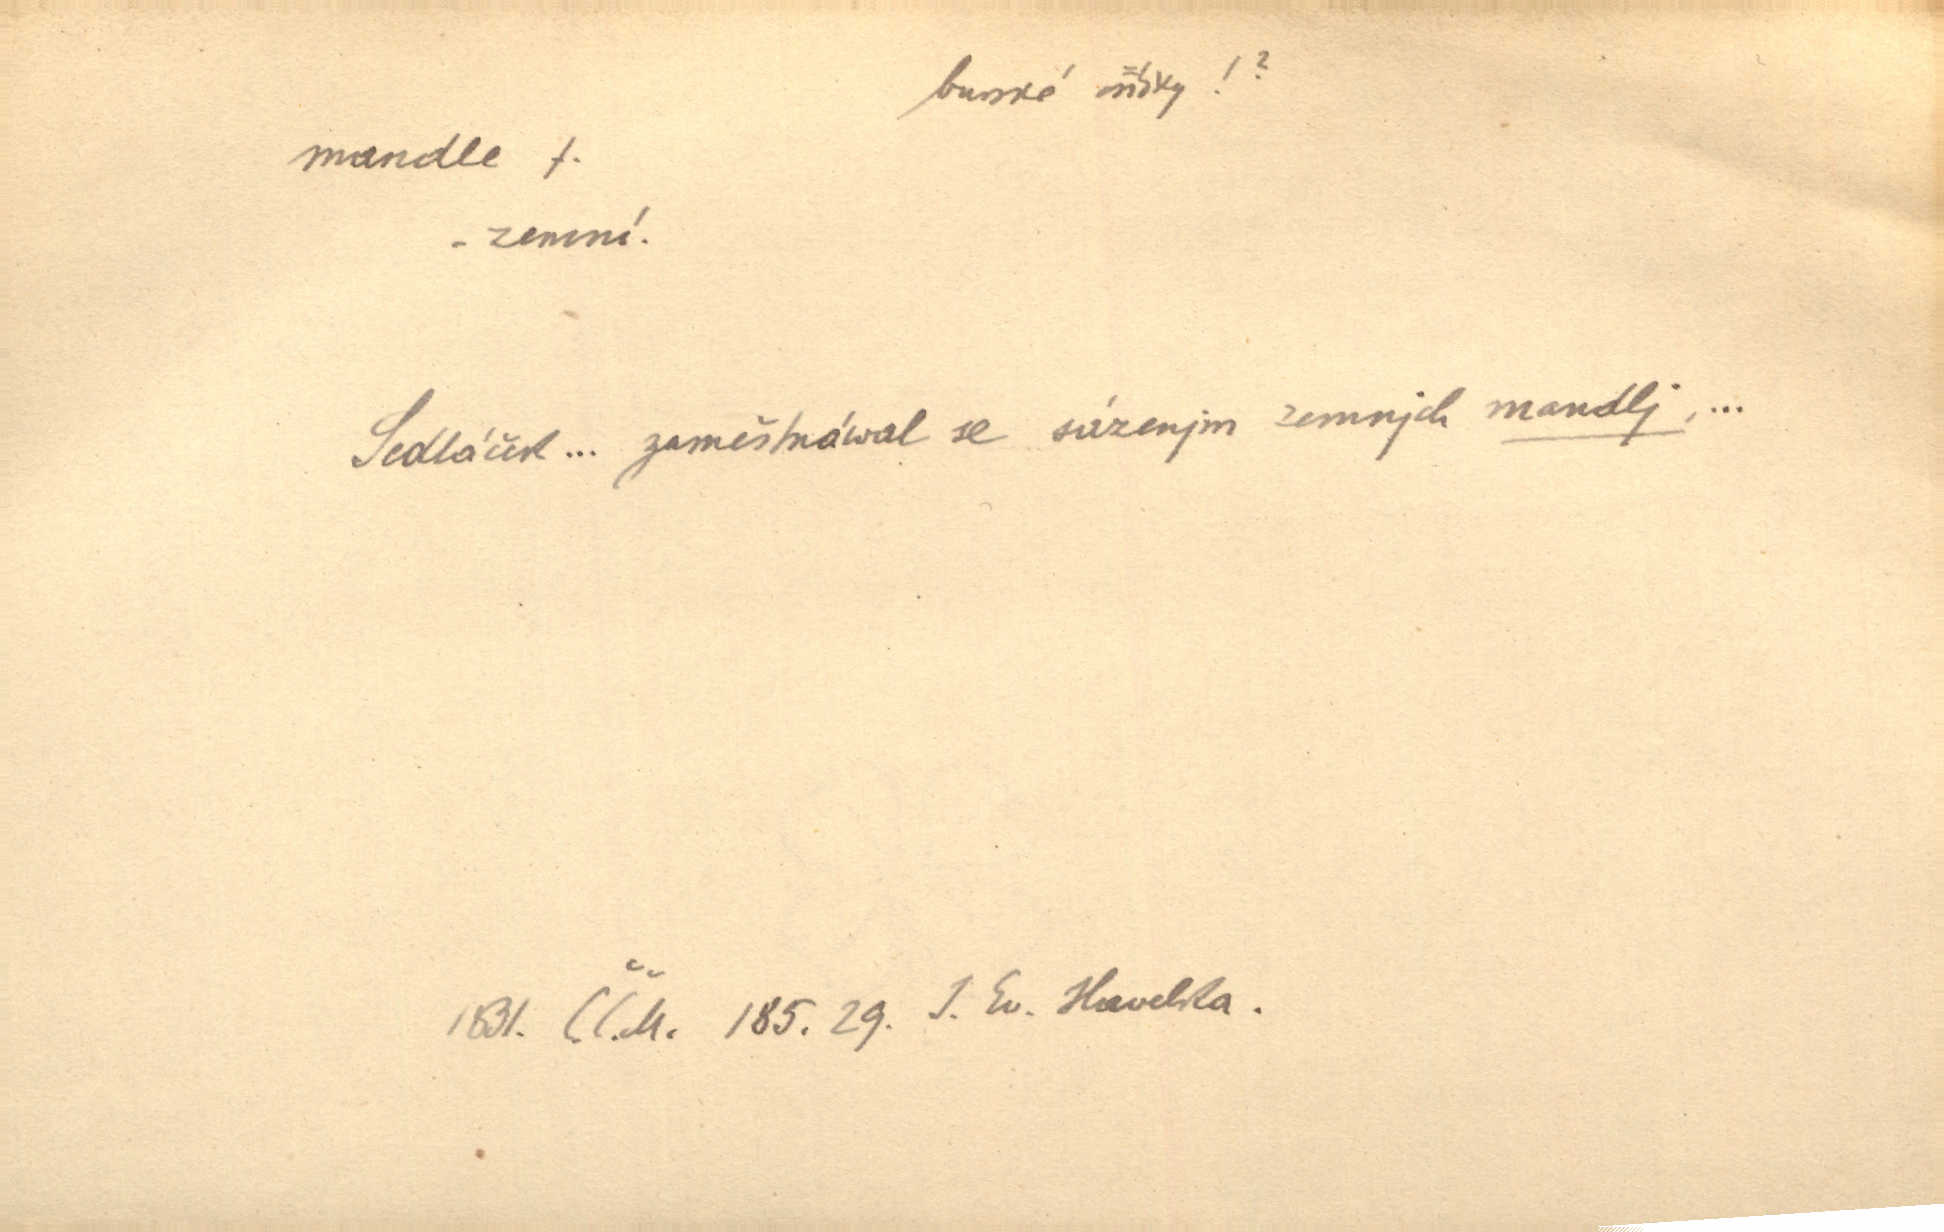 burské oříšky!?
mandle f.
- zemní.
Sedláček... zaměstnáwal se sázenjm zemnjch mandlj, ...
1831. Č.Č.M. 185. 29. J. Ev. Havelka.